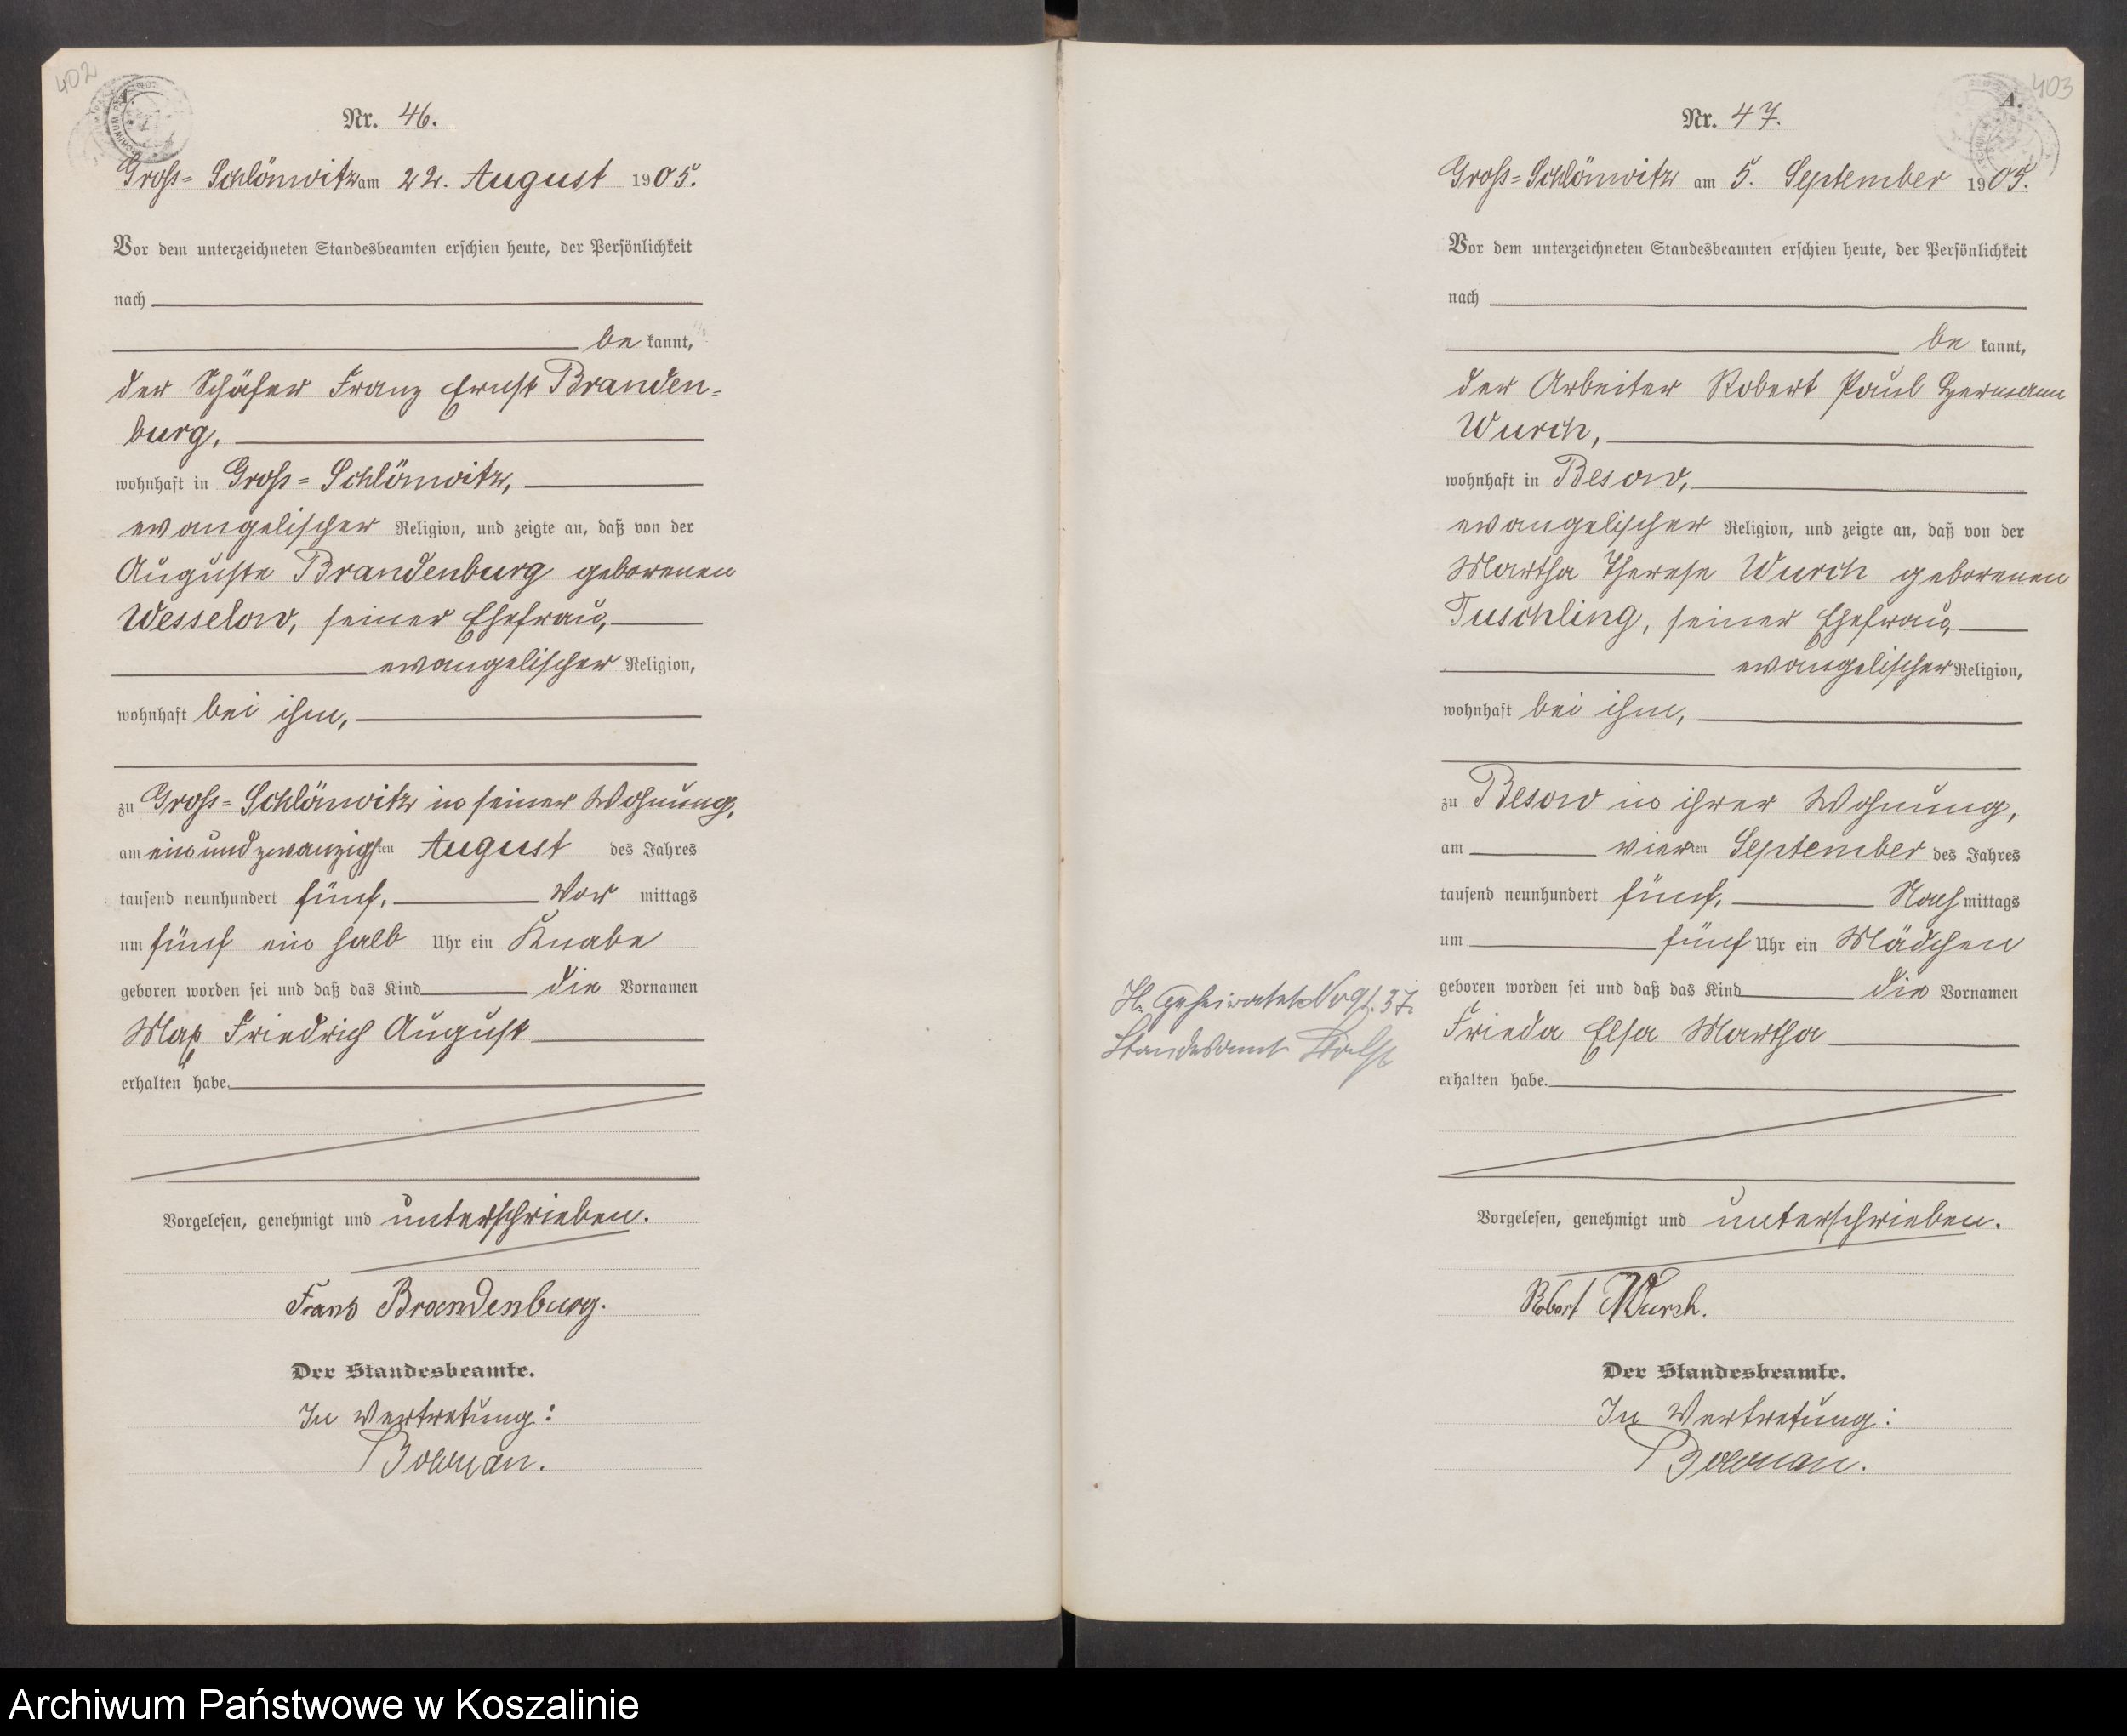 402
Nr. 46.
Groß-Schlönwitz am 22. August 1905.
Vor dem unterzeichneten Standesbeamten erschien heute, der Persönlichkeit
nach
be kannt,
der Schäfer Franz Ernst Branden-
burg,
wohnhaft in Groß-Schlönwitz,
evangelischer Religion, und zeigte an, daß von der
Auguste Brandenburg geborenen
Wesselow, seiner Ehefrau,
evangelischer Religion,
wohnhaft bei ihm,
zu Groß-Schlönwitz in seiner Wohnung,
am ein und zwanzigsten August des Jahres
tausend neunhundert fünf, Vor mittags
um fünf ein halb Uhr ein Knabe
geboren worden sei und daß das Kind die Vornamen
Max Friedrich August
erhalten habe.
Vorgelesen, genehmigt und unterschrieben.
Franz Brandenburg.
Der Standesbeamte.
In Vertretung:
403
A.
Nr. 47.
Groß-Schlönwitz am 5. September 1905.
Vor dem unterzeichneten Standesbeamten erschien heute, der Persönlichkeit
nach
be kannt,
der Arbeiter Robert Paul Hermann
Wurch,
wohnhaft in Besow,
evangelischer Religion, und zeigte an, daß von der
Martha Therese Wurch geborenen
Tuschling, seiner Ehefrau,
evangelischer Religion,
wohnhaft bei ihm,
zu Besow in ihrer Wohnung,
am vierten September des Jahres
tausend neunhundert fünf, Nach mittags
um fünf Uhr ein Mädchen
geboren worden sei und daß das Kind die Vornamen
Frieda Elsa Martha
erhalten habe.
Vorgelesen, genehmigt und unterschrieben.
Robert Wurch.
Der Standesbeamte.
In Vertretung:
geheiratet
Standesamt Stolp
Archiwum Państwowe w Koszalinie